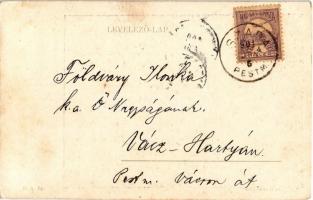 LEVELEZŐ-LAP
Földváry Ilonka
k.a. Ő Nagyságának.
Vácz-Hartyán.
Pest m. Vácon át
PESTM